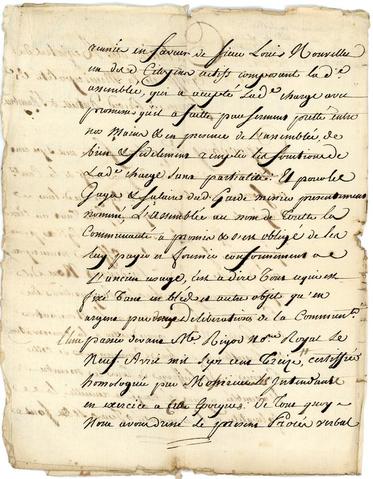 réunie en faveur de sieur Louis Nouvelle
un des d. Citoyens actifs composant lad.e
assemblée, qui a accepté lad.e charge avec
promesse qu'il a faitte par serment prêtté entre
nos Mains & en présence de L'assemblée, de
bien & fidelement remplir les fonctions de
Lad.e charge sans partialité. Et pour les
Gages & salaires dud. Garde messier présentement
nommé, L'assemblée au nom de Toutte la
Communauté a promis & s'est obligé de les
luy payer et fournir conformément a
L'ancien usage, c'est a dire Tout ce qui est
fixé Tant en bled et autre objet qu'en
argent par deux délibérations de la Commun.té
L'une passée devant M.e Not.re Royal le
Neuf Avril mil sept cent Treize, certiffiée
homologuée par Monsieur L'Intendant
en exercice a cette Epoque. De Tout quoy
Nous avons dressé le présent Procès verbal